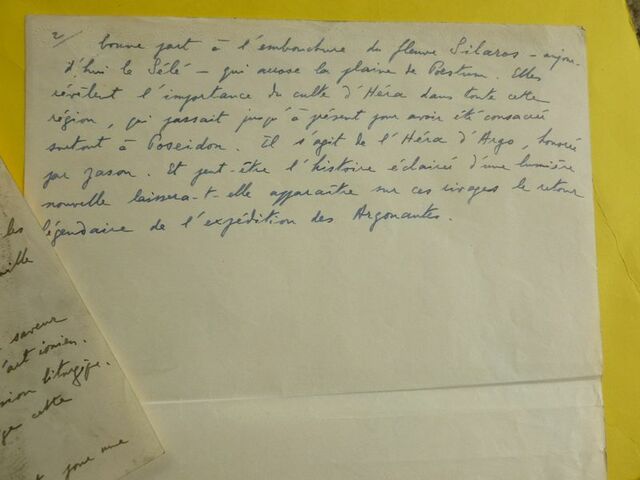 2/ bonne part à l'embouchure du fleuve Silaros – aujour-
d'hui le Sélé – qui arrose la plaine de Paestum. Elles
révèlent l'importance du culte d'Héra dans toute cette
région, qui passait jusqu'à présent pour avoir été consacrée
surtout à Poseidon. Il s'agit de l'Héra d'Argo, honorée
par Jason. Et peut-être l'histoire éclairée d'une lumière
nouvelle laissera-t-elle apparaître sur ces rivages le retour
légendaire de l'expédition des Argonautes.
les
saveur
l'art ionien.
liturgique.
cette
joue une